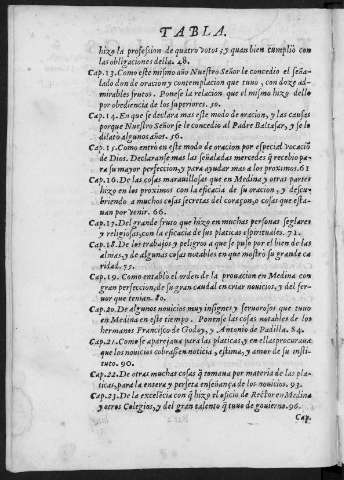 TABLA.
hizo la profesion de quatro votos; y quan bien cumplio con
las obligaciones della. 48.
Cap. 13. Como este mismo año Nuestro Señor le concedio el seña-
lado don de oracion y contemplacion que tuuo, con doze ad-
mirables frutos. Ponese la relacion que el mismo hizo dello
por obediencia de los superiores. 50.
Cap. 14. En que se declara mas este modo de oracion, y las causas
porque Nuestro Señor se le concedio al Padre Baltasar, y se lo
dilatò algunos años. 56.
Cap. 15. Como entrò en este modo de oracion por especial vocaciō
de Dios. Declaranse mas las señaladas mercedes q̃ recebio pa-
ra su mayor perfeccion, y para ayudar mas a los proximos. 61
Cap. 16. De las cosas marauillosas que en Medina y otras partes
hizo en los proximos con la eficacia de su oracion, y descu-
briendo a muchos cosas secretas del coraçon, o cosas que esta-
uan por venir. 66.
Cap. 17. Del grande fruto que hizo en muchas personas seglares
y religiosas, con la eficacia de sus platicas espirituales. 72.
Cap. 18. De los trabajos y peligros a que se puso por el bien de las
almas, y de algunas cosas notables en que mostrò su grande ca
ridad. 75.
Cap. 19. Como entablò el orden de la prouacion en Medina con
gran perfeccion, de su gran caudal en criar nouicios, y del fer-
uor que tenian. 80.
Cap. 20. De algunos nouicios muy insignes y feruorosos que tuuo
en Medina en este tiempo. Ponense las cosas notables de los
hermanos Francisco de Godoy, y Antonio de Padilla. 84.
Cap. 21. Como se aparejaua para las platicas, y en ellas procuraua
que los nouicios cobrassen noticia, estima, y amor de su insti-
tuto. 90.
Cap. 22. De otras muchas cosas q̃ tomaua por materia de las pla-
ticas, para la entera y perfeta enseñança de los nouicios. 93.
Cap. 23. De la excelēcia con q̃ hizo el oficio de Rector en Medina
y otros Colegios, y del gran talento q̃ tuuo de gouierno. 96.
Cap.